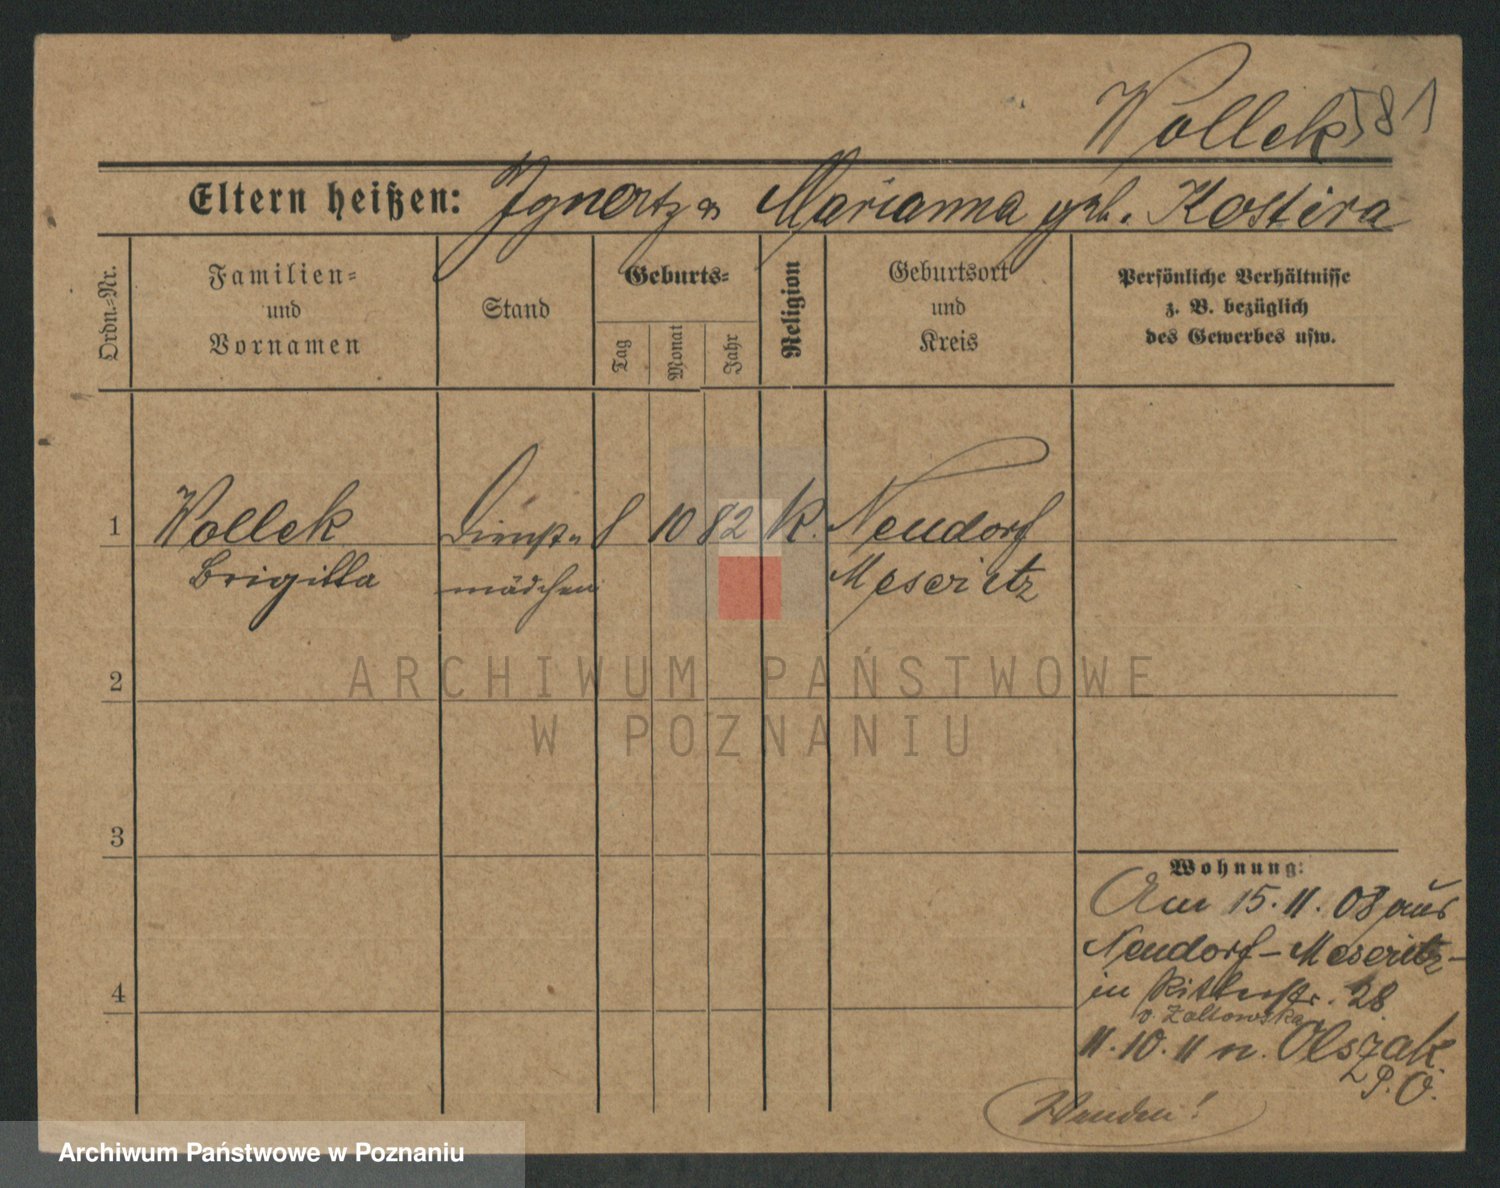 Wollek 581
Eltern heißen: Ignatz u Marianna geb. Kostera
Ordn.=Nr.
Familien=
und
Vornamen
Stand
Geburts=
Tag
Monat
Jahr
Religion
Geburtsort
und
Kreis
Persönliche Verhältnisse
z. B. bezüglich
des Gewerbes usw.
1 Wollek Dienst= 8 10 82 K. Neudorf
Brigitta mädchen Meseritz
2
3
4
Wohnung:
Am 15.11.08 aus
Neudorf-Meseritz-
in Ritterstr. 28
v. Zoltowska
11.10.11 n. Olszak
P.O.
Wenden!
ARCHIWUM PAŃSTWOWE
W POZNANIU
Archiwum Państwowe w Poznaniu